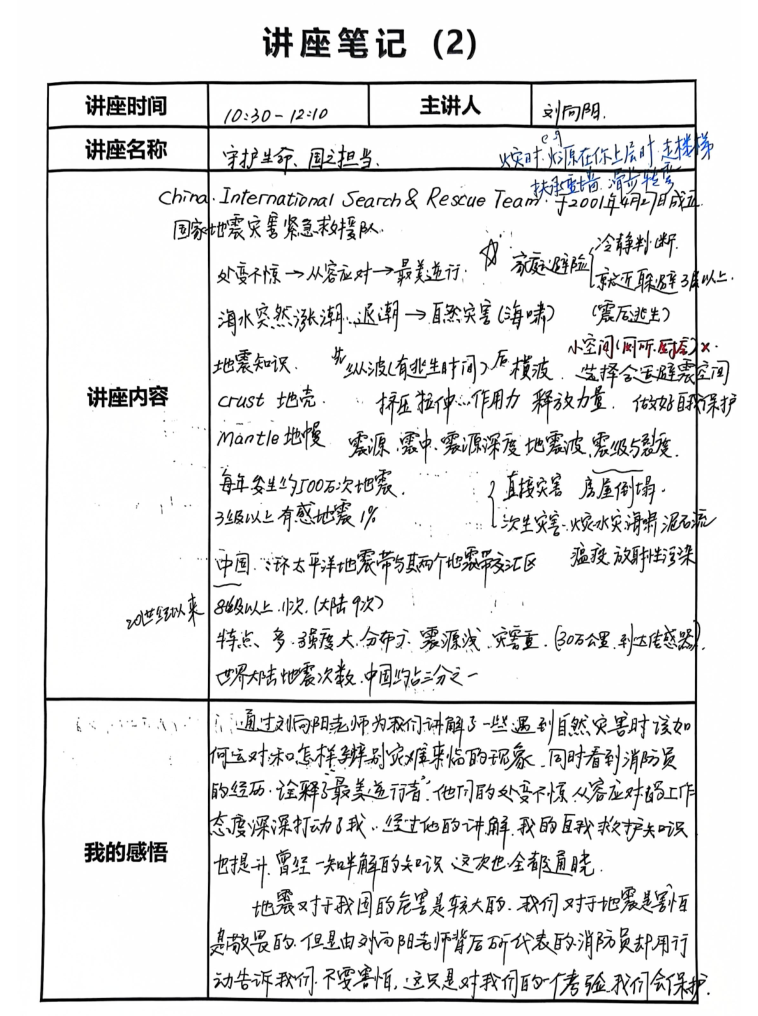 讲座笔记 (2)
讲座时间 10:30-12:10 主讲人 刘向阳.
讲座名称 守护生命、国之担当.
火灾时 火源在你上层时 走楼梯
扶承重墙
China International Search & Rescue Team 于2001年4月27日成立
国家地震灾害紧急救援队
处变不惊→从容应对→最美逆行. ☆ 家庭避险 冷静判断.
就近躲避 3级以上.
海水突然涨潮、退潮→自然灾害(海啸) (震后逃生)
小空间(厕所.厨房)×
地震知识. 先纵波(有逃生时间)后横波. 选择合适避震空间
讲座内容
crust 地壳. 挤压 拉伸…作用力 释放力量. 做好自我保护
Mantle 地幔 震源.震中.震源深度 地震波.震级与裂度.
每年发生约500万次地震. 直接灾害 房屋倒塌.
3级以上有感地震1% 次生灾害.火灾水灾海啸泥石流
瘟疫 放射性污染
中国:环太平洋地震带与其两个地震带交汇区
20世纪以来 8级以上.10次.(大陆9次)
特点、多.强度大.分布广 震源浅.灾害重.(30万公里.到达传感器).
世界大陆地震次数.中国约占三分之一
通过刘向阳老师为我们讲解了一些遇到自然灾害时该如
何应对和怎样辨别灾难来临的现象.同时看到消防员
的经历.诠释了"最美逆行者".他们的处变不惊.从容应对的工作
态度深深打动了我.经过他的讲解.我的自我救护知识
我的感悟
也提升.曾经一知半解的知识 这次也全都通晓.
地震对于我国的危害是较大的.我们对于地震是害怕
是敬畏的.但是由刘向阳老师背后所代表的消防员却用行
动告诉我们.不要害怕.这只是对我们的一个考验.我们会保护.